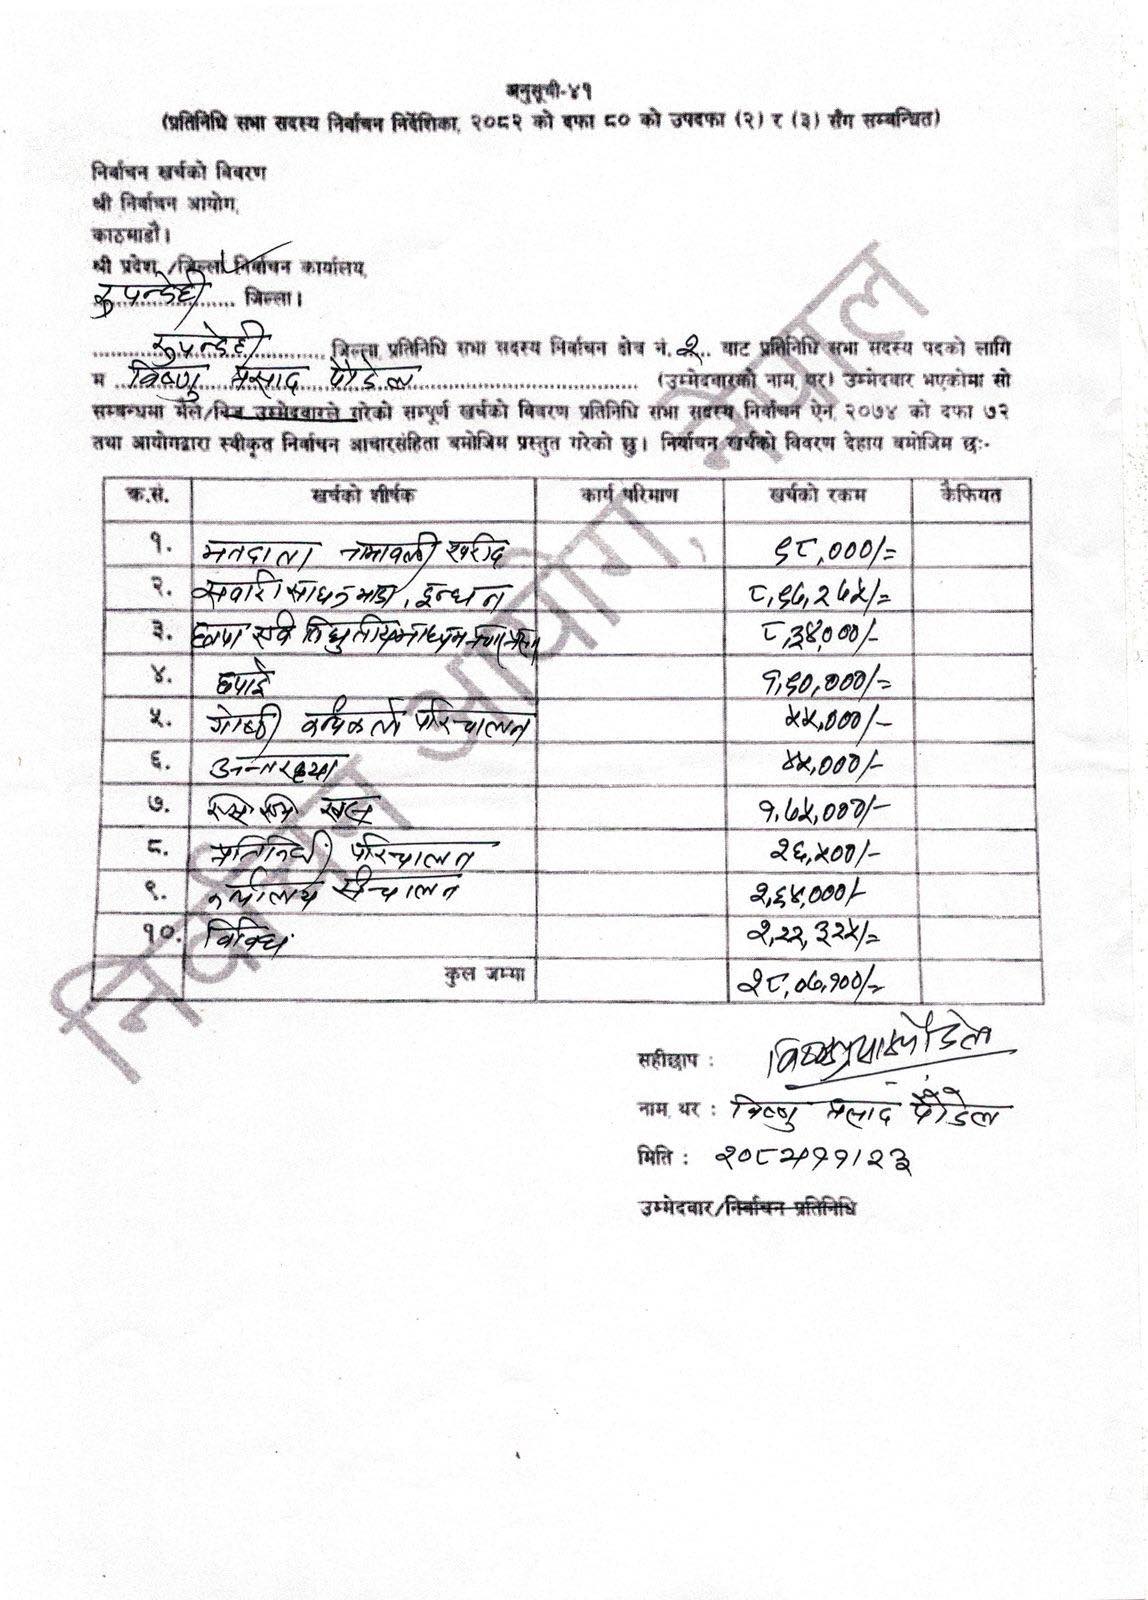 अनुसूची-४१
(प्रतिनिधि सभा सदस्य निर्वाचन निर्देशिका, २०८२ को दफा ८० को उपदफा (२) र (३) सँग सम्बन्धित)
निर्वाचन खर्चको विवरण
श्री निर्वाचन आयोग,
काठमाडौं।
श्री प्रदेश/जिल्ला निर्वाचन कार्यालय,
रुपन्देही जिल्ला।
रुपन्देही जिल्ला, प्रतिनिधि सभा सदस्य निर्वाचन क्षेत्र नं. २ बाट प्रतिनिधि सभा सदस्य पदको लागि
म विष्णु प्रसाद पौडेल (उम्मेदवारको नाम, थर) उम्मेदवार भएकोमा सो
सम्बन्धमा मैले/निज उम्मेदवारले गरेको सम्पूर्ण खर्चको विवरण प्रतिनिधि सभा सदस्य निर्वाचन ऐन, २०७४ को दफा ७२
तथा आयोगद्वारा स्वीकृत निर्वाचन आचारसंहिता बमोजिम प्रस्तुत गरेको छु। निर्वाचन खर्चको विवरण देहाय बमोजिम छः-
क्र.सं. खर्चको शीर्षक कार्य परिमाण खर्चको रकम कैफियत
१. मतदाता नामावली खरीद ६८,०००/=
२. सवारी साधन भाडा, इन्धन ८,६७,२७५/=
३. छापा एवं विधुतीय माध्यम ८,३४,०००/-
४. छपाई १,६०,०००/=
५. गोष्ठी परिचालन ५५,०००/-
६. अन्तरक्रया ४५,०००/-
७. खर्च १,७५,०००/-
८. प्रतिनिधी परिचालन २६,५००/-
९. कार्यालय संचालन २,६४,०००/-
१०. विविध २,२२,३२५/=
कुल जम्मा २८,०७,१००/=
सहीछाप : विष्णुप्रसाद पौडेल
नाम, थर : विष्णु प्रसाद पौडेल
मिति : २०८२।११।२३
उम्मेदवार/निर्वाचन प्रतिनिधि
निर्वाचन आयोग, नेपाल